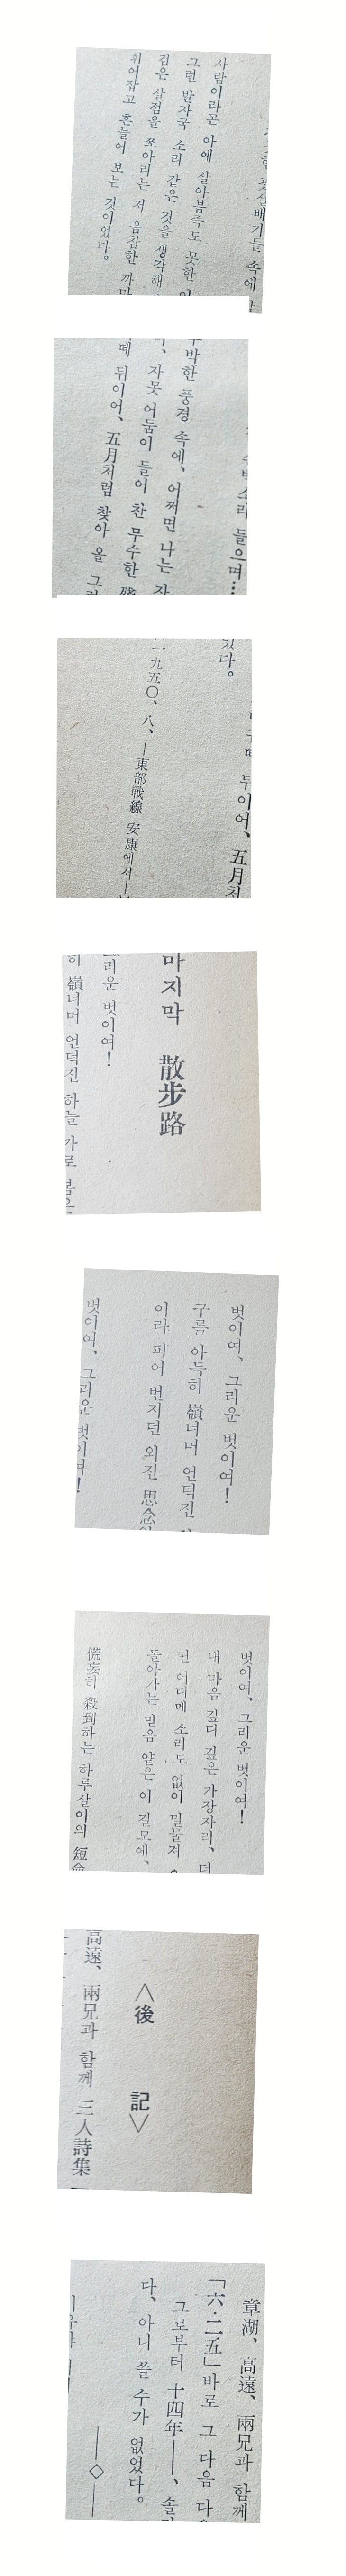 속에
사람이라곤 아예 살아봄즉도 못한
그런 발자국 소리 같은 것을 생각해
검은 살점을 쪼아리는 저 음참한 까마
휘어잡고 흔들어 보는 것이었다.
소리 들으며…
수박한 풍경 속에, 어쩌면 나는 자
자못 어둠이 들어 찬 무수한
떼 뒤이어, 五月처럼 찾아 올 그
뒤이어, 五月처
었다.
一九五〇、八、—東部戰線 安康에서—
마지막 散步路
그리운 벗이여!
히 嶺너머 언덕진 하늘 가로
벗이여、그리운 벗이여!
구름 아득히 嶺너머 언덕진
이라 피어 번지던 외진 思念
벗이여、그리운 벗이여!
벗이여、그리운 벗이여!
내 마음 깊디 깊은 가장자리、더
면 어디메 소리도 없이 밀물져
돌아가는 믿음 얕은 이 길모에、
慌妄히 殺到하는 하루살이의 短命
〈後記〉
高遠、兩兄과 함께 三人詩集
章湖、高遠、兩兄과 함께
「六·二五」바로 그 다음 다
그로부터 十四年——、솔
다、아니 쓸 수가 없었다。
—◇—